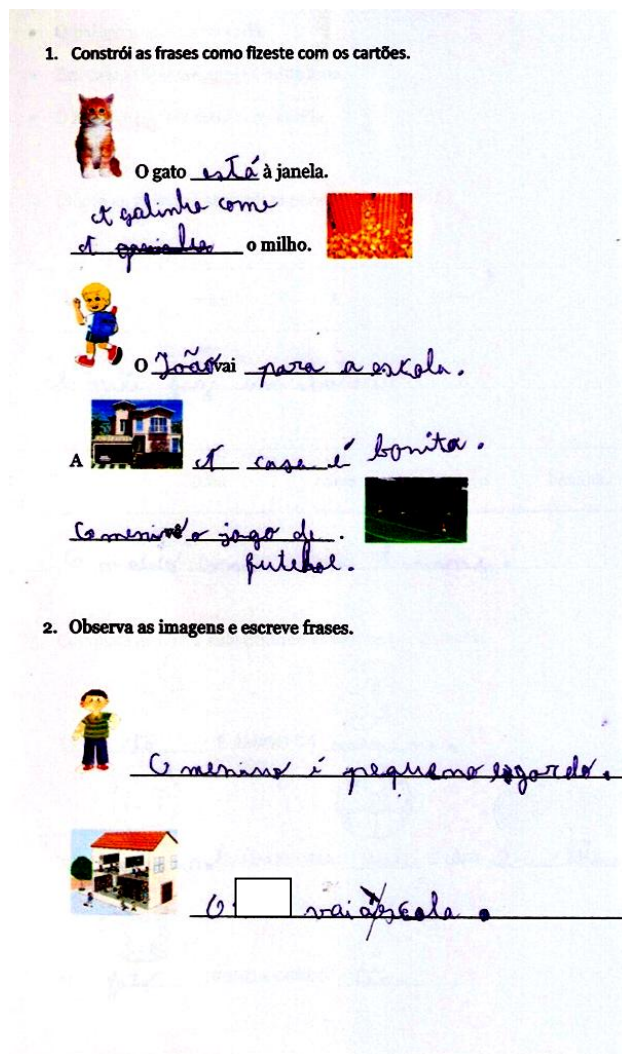 1. Constrói as frases como fizeste com os cartões.
O gato está à janela.
A galinha come
A o milho.
O João vai para a escola.
A A casa é bonita.
O meni vê o jogo de .
futebol.
2. Observa as imagens e escreve frases.
O menino é pequeno e gordo.
O vai à escola.